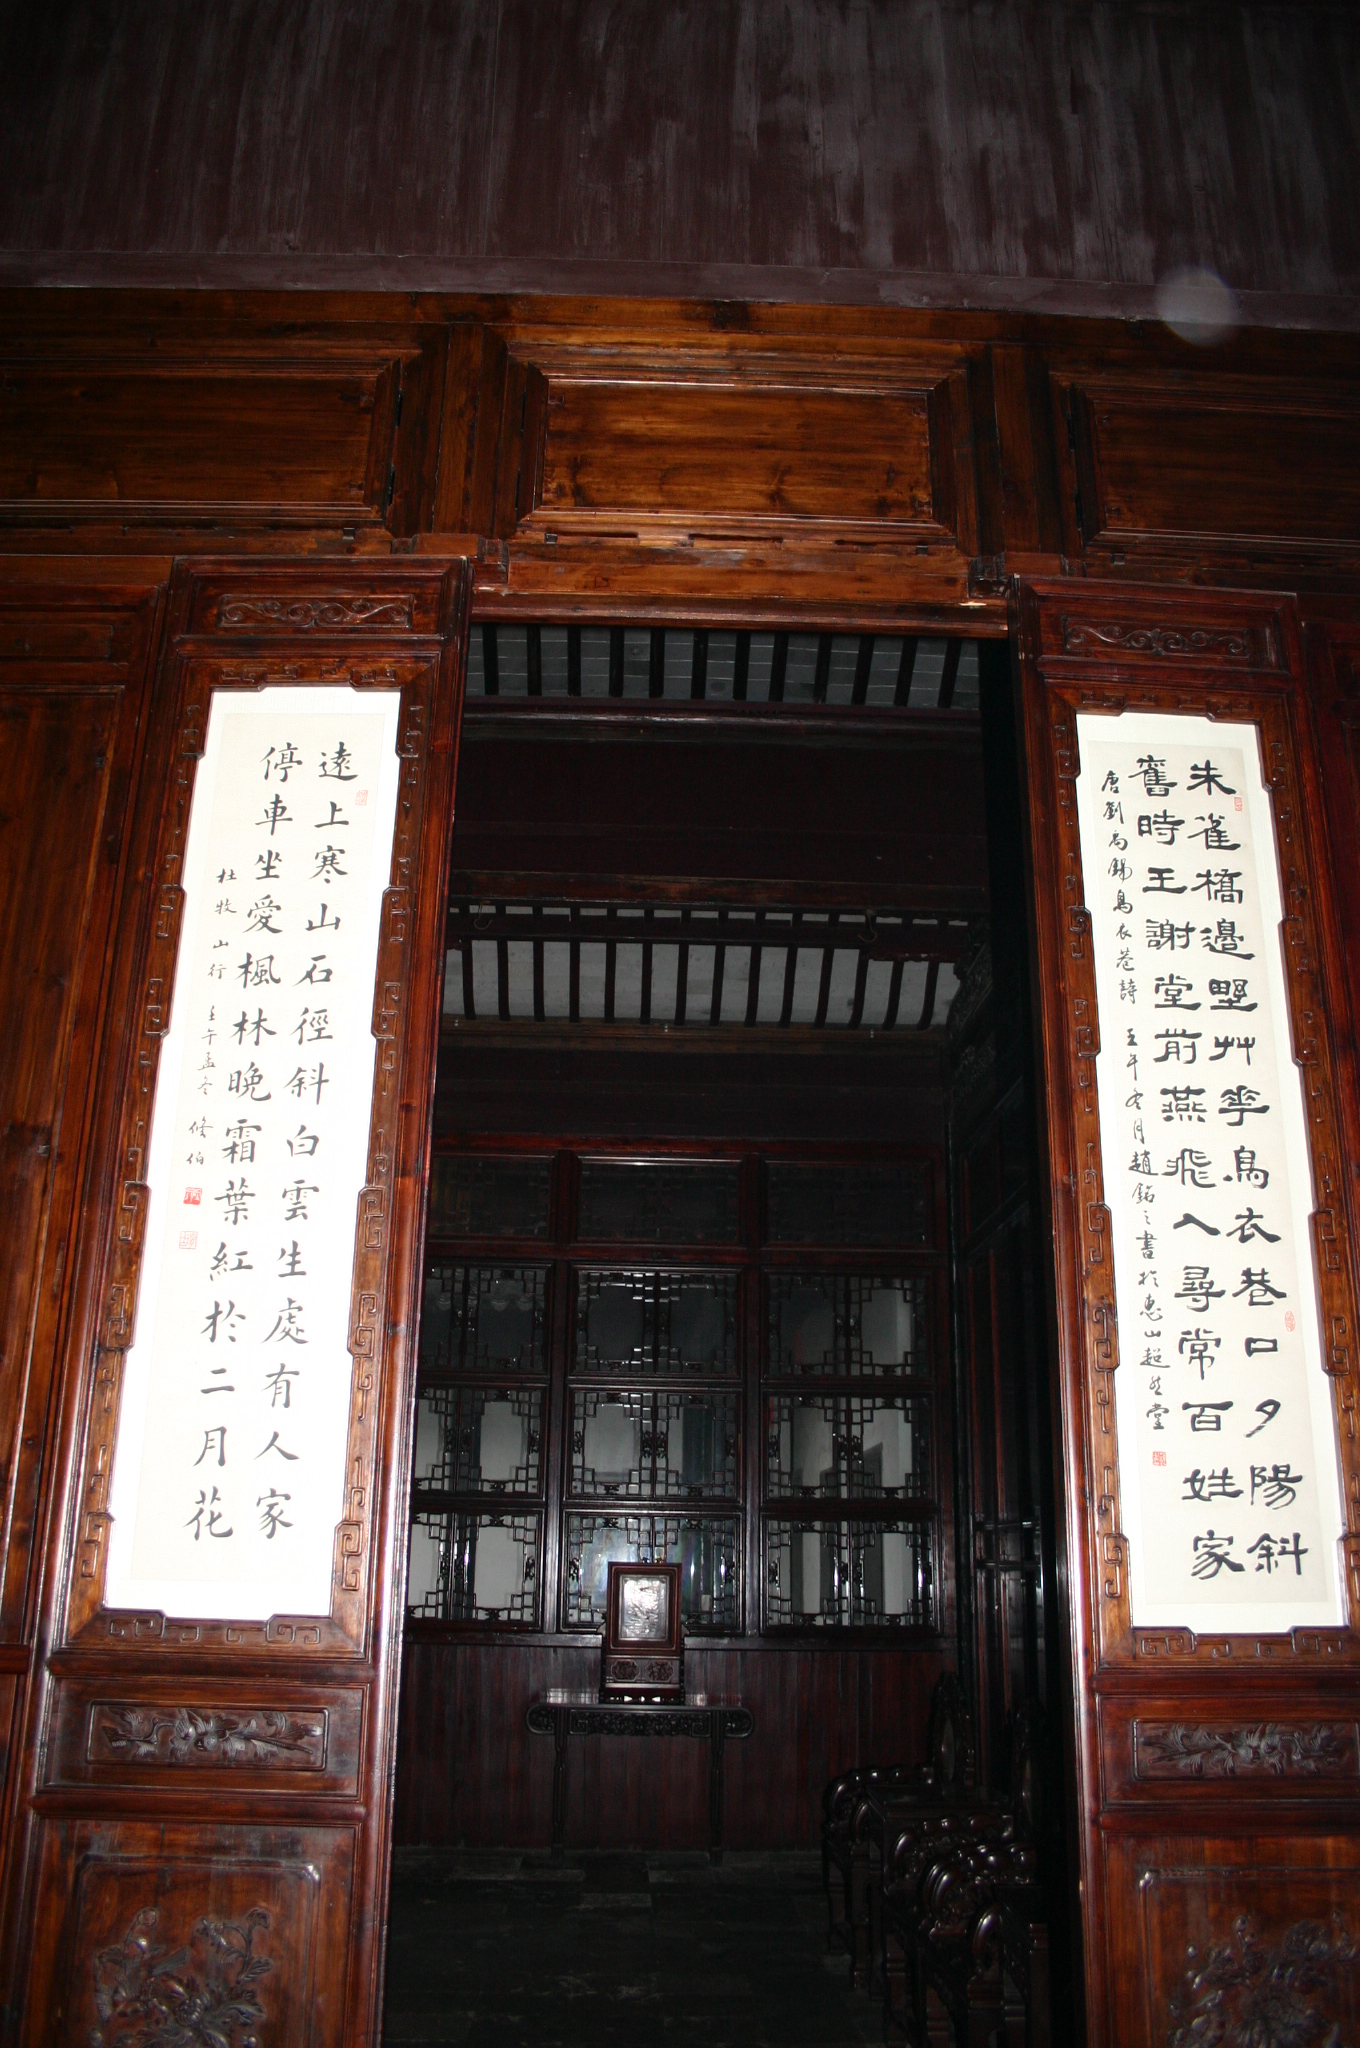 朱雀橋邊野艸花烏衣巷口夕陽斜
舊時王謝堂前燕飛入尋常百姓家
唐劉禹錫烏衣巷詩 壬午冬月趙銘之書於惠山超然堂
遠上寒山石徑斜白雲生處有人家
停車坐愛楓林晚霜葉紅於二月花
杜牧山行 壬午孟冬 脩伯